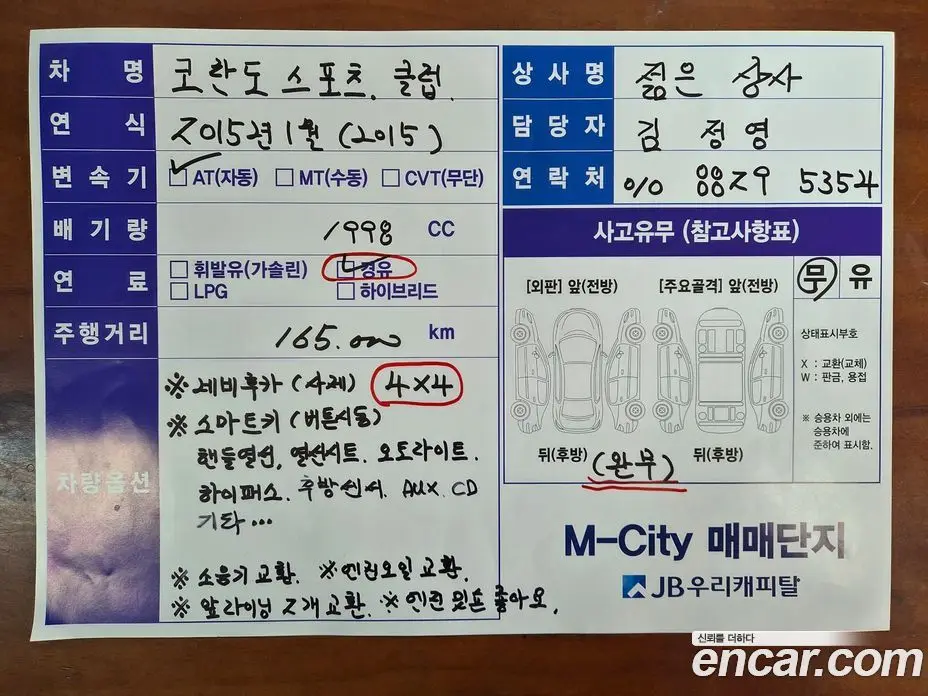 차 명 코란도 스포츠. 클럽.
연 식 2015년 1월 (2015)
변 속 기 AT(자동) MT(수동) CVT(무단)
배 기 량 1998 CC
연 료 휘발유(가솔린) 경유
LPG 하이브리드
주행거리 165.000 km
차량옵션
※ 네비후카 (사제) 4X4
※ 스마트키 (버튼시동)
핸들열선, 열선시트. 오토라이트.
하이패스. 후방센서. AUX. CD
기타...
※ 소음기 교환. ※ 엔진오일 교환.
※ 앞라이닝 2개 교환. ※ 엔진 미션 좋아요.
상 사 명 젊은 상사
담 당 자 김 정 영
연 락 처 010 8829 5354
사고유무 (참고사항표)
[외판] 앞(전방) [주요골격] 앞(전방)
뒤(후방) 뒤(후방)
(완무)
무 유
상태표시부호
X : 교환(교체)
W : 판금, 용접
※ 승용차 외에는
승용차에
준하여 표시함.
M-City 매매단지
JB우리캐피탈
신뢰를 더하다
encar.com